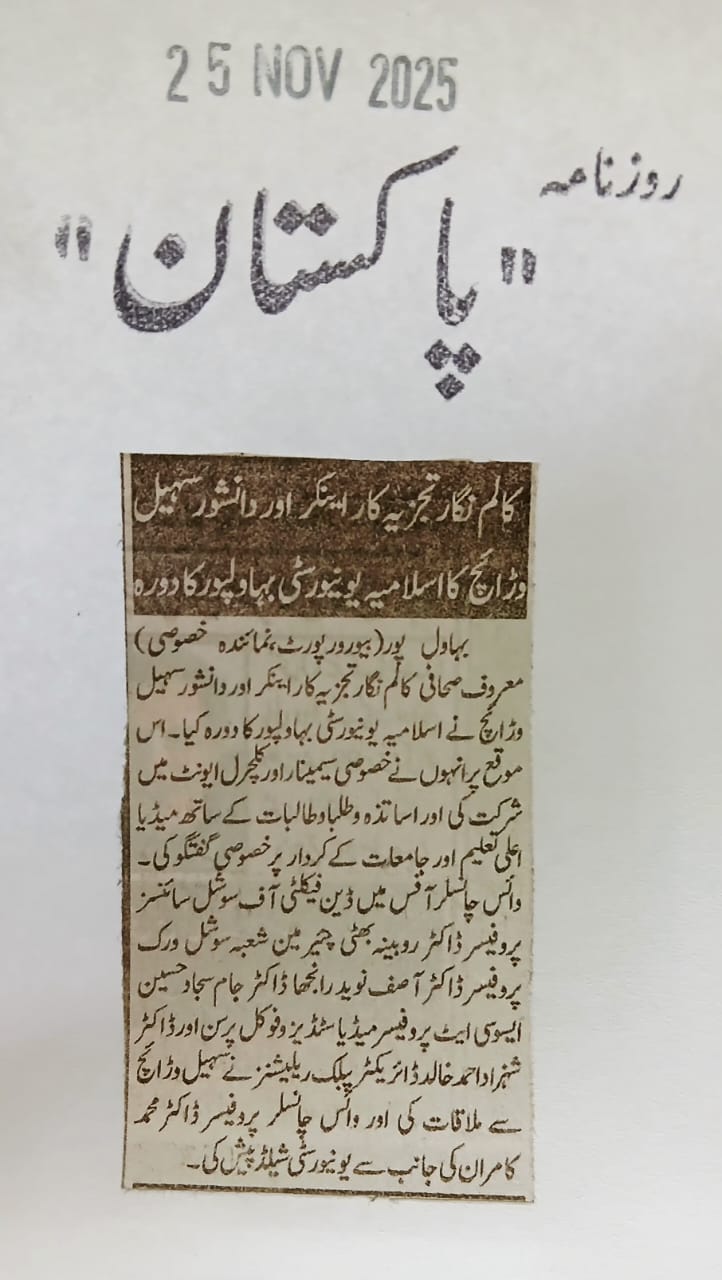 25 NOV 2025
روزنامہ
"پاکستان"
کالم نگار تجزیہ کار اینکر اور دانشور سہیل
وڑائچ کا اسلامیہ یونیورسٹی بہاولپور کا دورہ
بہاول پور (بیورورپورٹ، نمائندہ خصوصی)
معروف صحافی کالم نگار تجزیہ کار اینکر اور دانشور سہیل
وڑائچ نے اسلامیہ یونیورسٹی بہاولپور کا دورہ کیا۔ اس
موقع پر انہوں نے خصوصی سیمینار اور کلچرل ایونٹ میں
شرکت کی اور اساتذہ و طلبا و طالبات کے ساتھ میڈیا
اعلی تعلیم اور جامعات کے کردار پر خصوصی گفتگو کی۔
وائس چانسلر آفس میں ڈین فیکلٹی آف سوشل سائنسز
پروفیسر ڈاکٹر روبینہ بھٹی چیرمین شعبہ سوشل ورک
پروفیسر ڈاکٹر آصف نوید رانجھا ڈاکٹر جام سجاد حسین
ایسوسی ایٹ پروفیسر میڈیا سٹڈیز و فوکل پرسن اور ڈاکٹر
شہزاد احمد خالد ڈائریکٹر پبلک ریلیشنز نے سہیل وڑائچ
سے ملاقات کی اور وائس چانسلر پروفیسر ڈاکٹر محمد
کامران کی جانب سے یونیورسٹی شیلڈ پیش کی۔